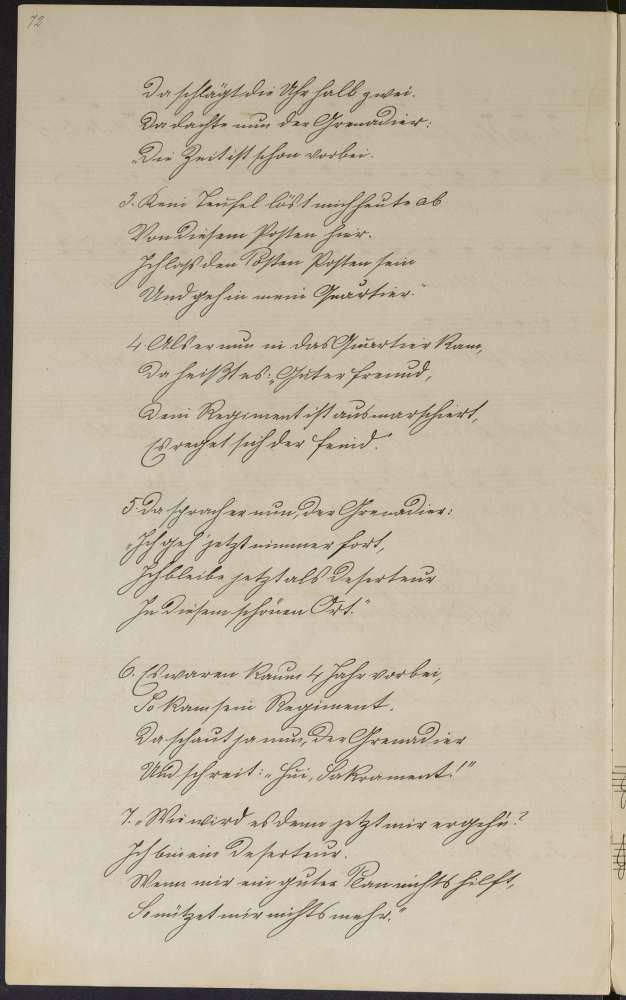 72
Da schlägt die Uhr halb zwei.
Da dachte nun der Grenadier:
„Die Zeit ist schon vorbei.
3. Kein Teufel löst mich heute ab
Von diesem Posten hier.
Ich lass den Posten Posten sein
Und geh in mein Quartier."
4. Als er nun in das Quartier kam,
Da heißt es: „Guter Freund,
Dein Regiment ist ausmarschiert,
Es reget sich der Feind."
5. Da sprach er nun, der Grenadier:
„Ich geh' jetzt nimmer fort,
Ich bleibe jetzt als Deserteur
In diesem schönen Ort."
6. Es waren kaum 4 Jahr vorbei,
So kam sein Regiment.
Da schaut ja nun, der Grenadier
Und schreit: „Hui, Sakrament!"
7. „Wie wird es denn jetzt mir ergehn?
Ich bin ein Deserteur.
Wenn mir ein guter Plan nichts hilft,
So nützet mir nichts mehr."